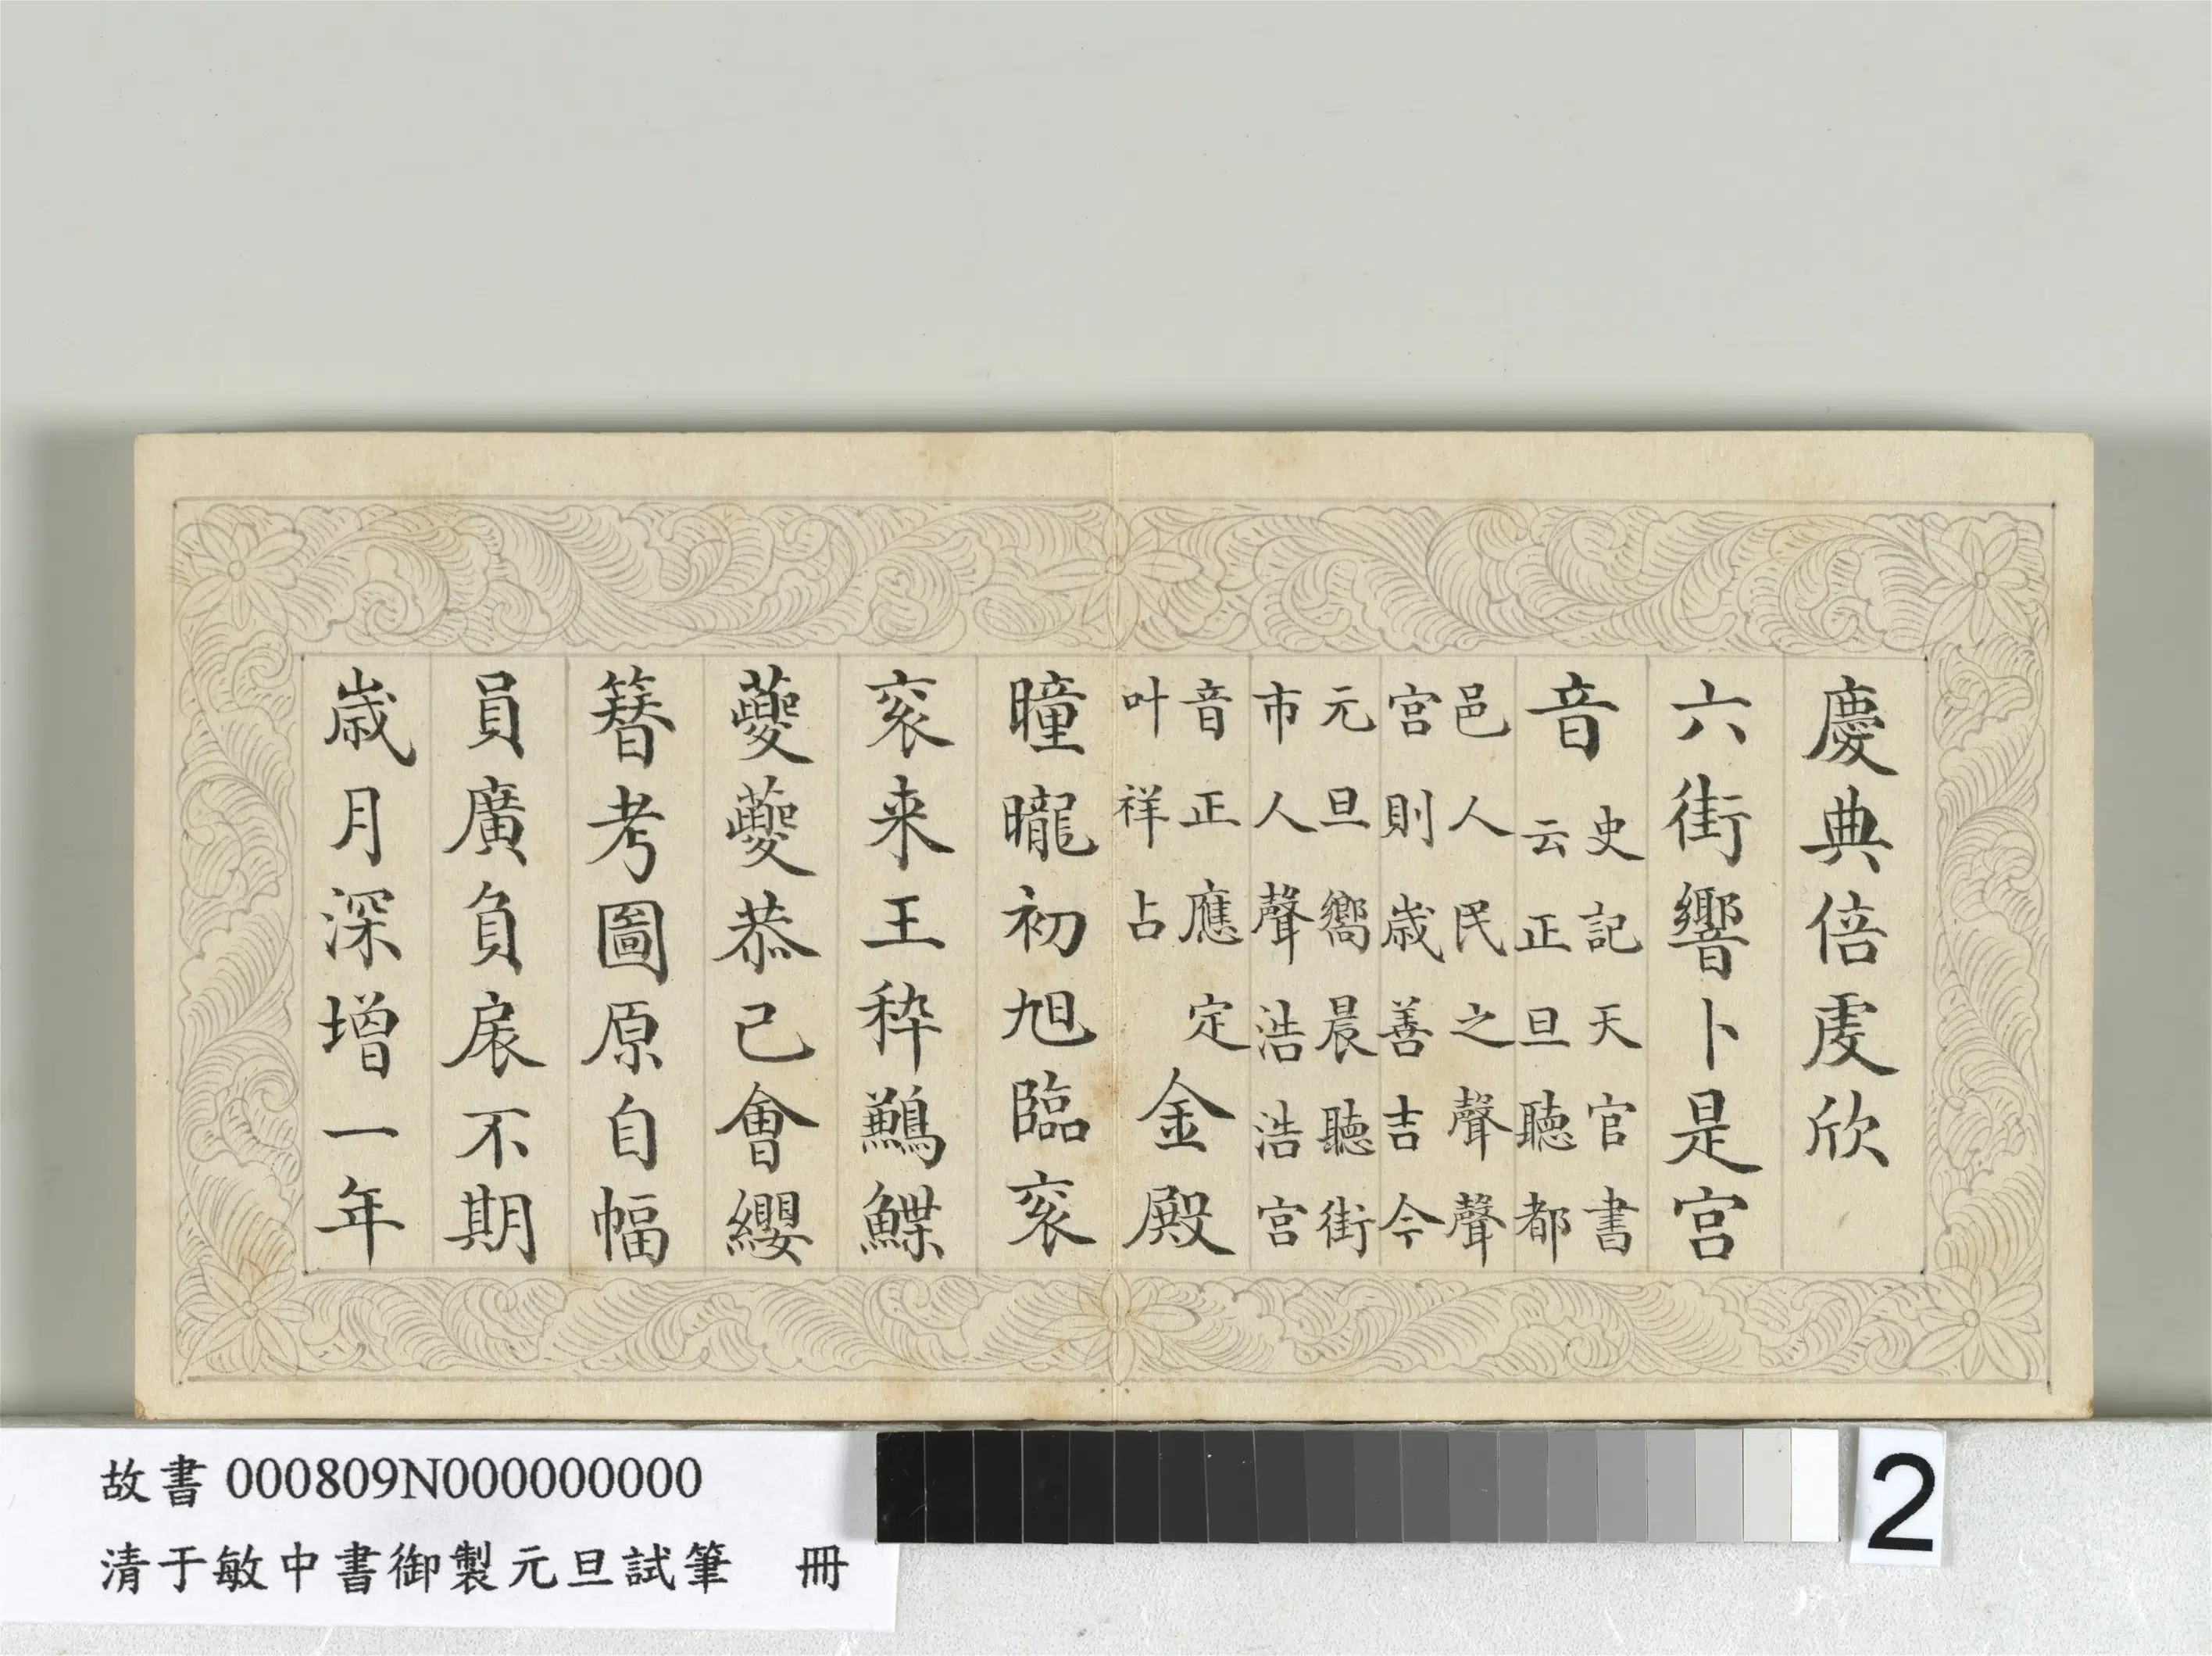 慶典倍虔欣
六街響卜是宫
音
史記天官書
云正旦聽都
邑人民之聲聲
宫則歳善吉今
元旦嚮晨聽街
市人聲浩浩宫
音正應定
叶祥占
金殿
曈曨初旭臨衮
衮来王稡鶼鰈
蘷蘷恭己會纓
簮考圖原自幅
員廣負扆不期
歳月深增一年
故書 000809N000000000
清于敏中書御製元旦試筆 冊
2